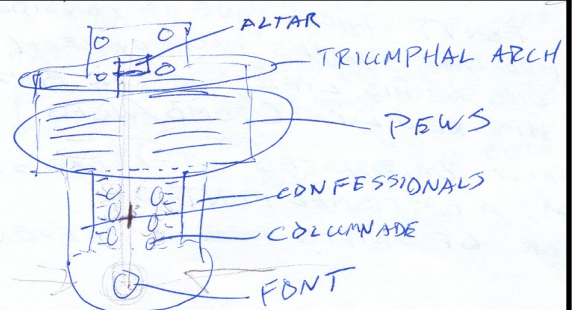 ALTAR
TRIUMPHAL ARCH
PEWS
CONFESSIONALS
COLUMNADE
FONT